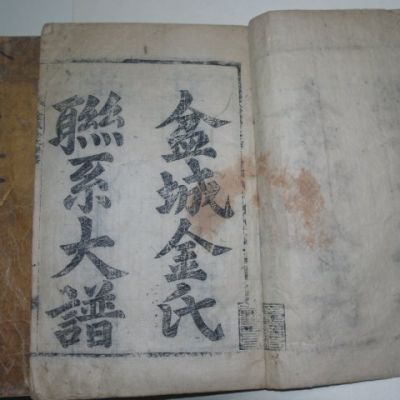 盆城金氏
聯系大譜